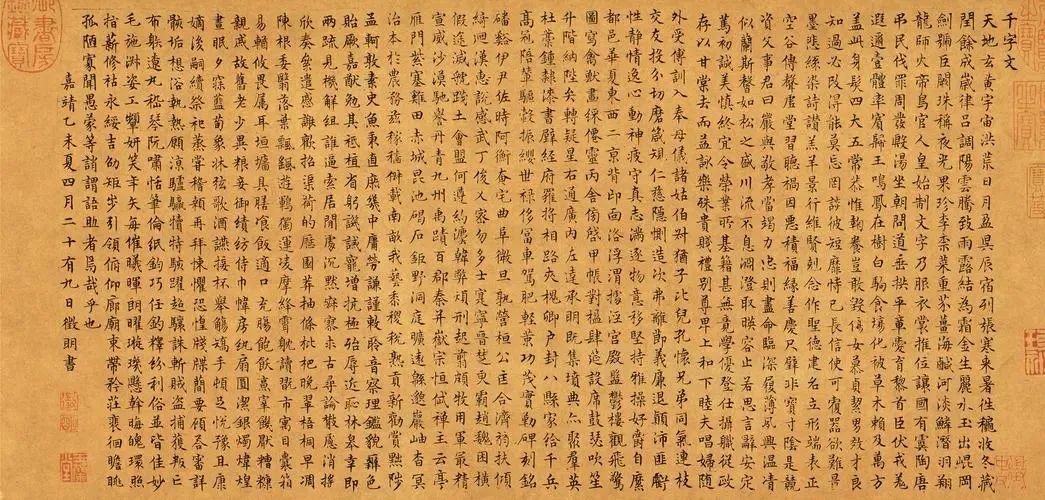 千字文
天地玄黃宇宙洪荒日月盈昃辰宿列張寒來暑往秋收冬藏
閏餘成歲律呂調陽雲騰致雨露結為霜金生麗水玉出崑岡
劍號巨闕珠稱夜光果珍李柰菜重芥薑海鹹河淡鱗潛羽翔
龍師火帝鳥官人皇始制文字乃服衣裳推位讓國有虞陶唐
弔民伐罪周發殷湯坐朝問道垂拱平章愛育黎首臣伏戎羌
遐邇壹體率賓歸王鳴鳳在樹白駒食場化被草木賴及萬方
蓋此身髮四大五常恭惟鞠養豈敢毀傷女慕貞絜男效才良
知過必改得能莫忘罔談彼短靡恃己長信使可覆器欲難量
墨悲絲染詩讚羔羊景行維賢剋念作聖德建名立形端表正
空谷傳聲虛堂習聽禍因惡積福緣善慶尺璧非寶寸陰是競
資父事君曰嚴與敬孝當竭力忠則盡命臨深履薄夙興溫凊
似蘭斯馨如松之盛川流不息淵澄取映容止若思言辭安定
篤初誠美慎終宜令榮業所基籍甚無竟學優登仕攝職從政
存以甘棠去而益詠樂殊貴賤禮別尊卑上和下睦夫唱婦隨
外受傅訓入奉母儀諸姑伯叔猶子比兒孔懷兄弟同氣連枝
交友投分切磨箴規仁慈隱惻造次弗離節義廉退顛沛匪虧
性靜情逸心動神疲守真志滿逐物意移堅持雅操好爵自縻
都邑華夏東西二京背邙面洛浮渭據涇宮殿盤鬱樓觀飛驚
圖寫禽獸畫彩僊靈丙舍傍啟甲帳對楹肆筵設席鼓瑟吹笙
升階納陛弁轉疑星右通廣內左達承明既集墳典亦聚群英
杜稾鍾隸漆書壁經府羅將相路俠槐卿戶封八縣家給千兵
高冠陪輦驅轂振纓世祿侈富車駕肥輕策功茂實勒碑刻銘
磻谿伊尹佐時阿衡奄宅曲阜微旦孰營桓公匡合濟弱扶傾
綺迴漢惠說感武丁俊乂密勿多士寔寧晉楚更霸趙魏困橫
假途滅虢踐土會盟何遵約法韓弊煩刑起翦頗牧用軍最精
宣威沙漠馳譽丹青九州禹蹟百郡秦并嶽宗恒岱禪主云亭
雁門紫塞雞田赤城昆池碣石鉅野洞庭曠遠綿邈巖岫杳冥
治本於農務茲稼穡俶載南畝我藝黍稷稅熟貢新勸賞黜陟
孟軻敦素史魚秉直庶幾中庸勞謙謹敕聆音察理鑑貌辨色
貽厥嘉猷勉其祗植省躬譏誡寵增抗極殆辱近恥林皋幸即
兩疏見機解組誰逼索居閒處沉默寂寥求古尋論散慮逍遙
欣奏累遣慼謝歡招渠荷的歷園莽抽條枇杷晚翠梧桐早凋
陳根委翳落葉飄颻遊鵾獨運凌摩絳霄耽讀翫市寓目囊箱
易輶攸畏屬耳垣墻具膳飡飯適口充腸飽飫烹宰饑厭糟糠
親戚故舊老少異糧妾御績紡侍巾帷房紈扇圓潔銀燭煒煌
晝眠夕寐藍筍象床弦歌酒讌接杯舉觴矯手頓足悅豫且康
嫡後嗣續祭祀蒸嘗稽顙再拜悚懼恐惶牋牒簡要顧答審詳
骸垢想浴執熱願涼驢騾犢特駭躍超驤誅斬賊盜捕獲叛亡
布射遼丸嵇琴阮嘯恬筆倫紙鈞巧任釣釋紛利俗並皆佳妙
毛施淑姿工顰妍笑年矢每催曦暉朗曜璇璣懸斡晦魄環照
指薪修祜永綏吉劭矩步引領俯仰廊廟束帶矜莊徘徊瞻眺
孤陋寡聞愚蒙等誚謂語助者焉哉乎也
嘉靖乙未夏四月二十有九日徵明書